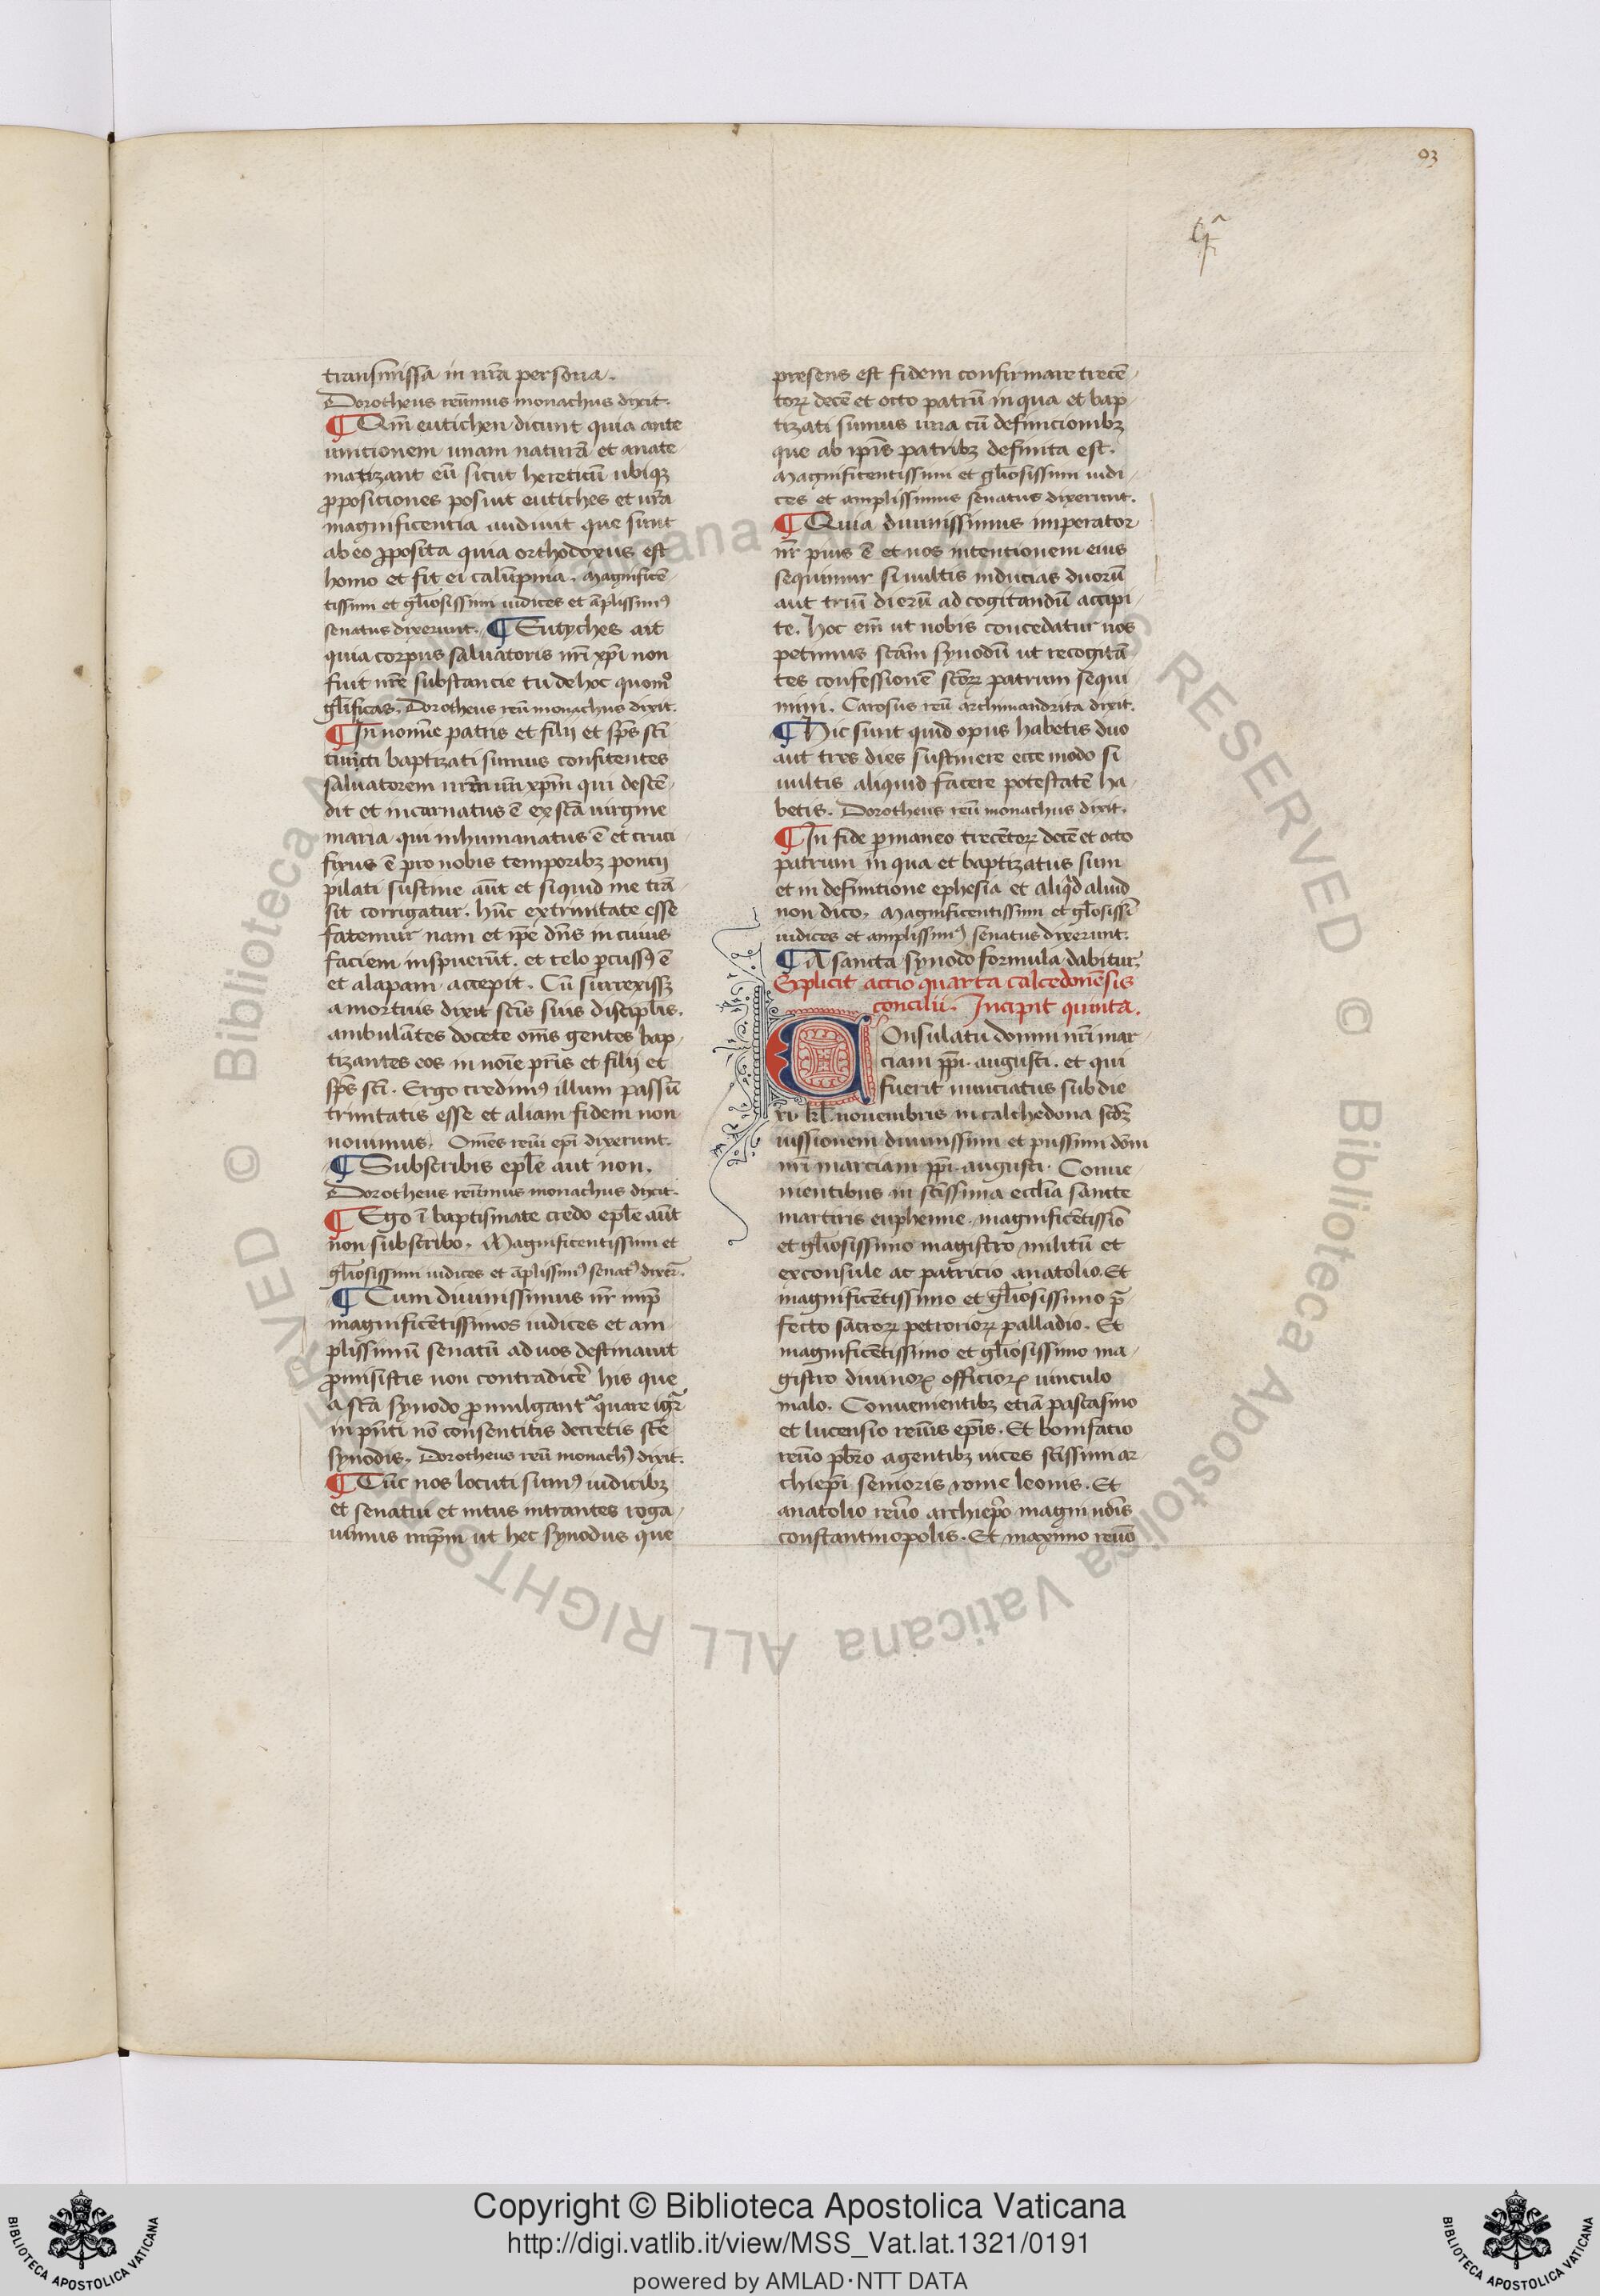 93
transmissa in nr̄a persona.
Dorotheus reūmus monachus dixit.
¶ Qm̄ eutichen dicunt quia ante
unitionem unam naturā et anate
matizant eū sicut hereticū ubiqꝫ
ꝓpositiones posuit eutiches et ur̄a
magnificentia audiuit que sunt
ab eo ꝓposita quia orthodoxus est
homo et fit ei calūpnia. Magnificē
tissimi et gl̄iosissimi iudices et āplissimꝰ
senatus dixerunt. ¶ Eutyches ait
quia corpus saluatoris nr̄i xp̄i non
fuit nr̄e substancie tu de hoc quomͦ
gl̄ificas. Dorotheus reū monachus dixit.
¶ In nomīe patris et filij et sp̄s sc̄i
cuncti baptizati sumus confitentes
saluatorem nr̄m xp̄m qui descē
dit et incarnatus ē ex sc̄a uirgine
maria qui inhumanatus ē et cruci
fixus ē pro nobis temporibꝫ poncij
pilati sustine aūt et siquid me trā
sit corrigatur. hūc ex trinitate esse
fatemur nam et ip̄e dn̄s in cuius
faciem inspuerūt. et telo ꝑcussꝰ ē
et alapam accepit. Cū surrexissꝫ
a mortuis dixit sc̄is suis discipl̄is.
ambulātes docete om̄s gentes bap
tizantes eos in noīe pr̄is et filij et
sp̄s sc̄i. Ergo credimꝰ illum passū
trinitatis esse et aliam fidem non
nouimus. Om̄es reūi ep̄i dixerunt.
¶ Subscribis epl̄e aut non.
Dorotheus reūmus monachus dixit.
¶ Ego ī baptismate credo epl̄e aūt
non subscribo. Magnificentissimi et
gl̄iosissimi iudices et āplissimꝰ senatꝰ dixer̄.
¶ Cum diuinissimus nr̄ imp̄
magnificētissimos iudices et am
plissimū senatū ad uos destinauit
ꝓmisistis non contradicēr his que
a sc̄a synodo ꝓmulgantᷣ quare igr̄
in pn̄ti nō consentitis decretis sc̄e
synodis. Dorotheus reū monachꝰ dixit.
¶ Tūc nos locuti sumꝰ iudicibꝫ
et senatui et intus intrantes roga
uimus imp̄m ut hec synodus que
presens est fidem confirmare trecē
toꝝ decē et octo patrū in qua et bap
tizati sumus una cū definicionibꝫ
que ab ip̄is patribꝫ definita est.
Magnificentissimi et gl̄iosissimi iudi
ces et amplissimus senatus dixerunt.
¶ Quia diuinissimus imperator
nr̄ pius ē et nos intentionem eius
sequimur si uultis inducias duorū
aut triū dierū ad cogitandū accipi
te. hoc em̄ ut nobis concedatur nos
petimus sc̄am synodū ut recogitā
tes confessionē sc̄oꝝ patrum sequi
mini. Carosus reū archimandrita dixit.
¶ Hic sunt quid opus habetis duo
aut tres dies sustinere ecce modo si
uultis aliquid facere potestatē ha
betis. Dorotheus reū monachus dixit.
¶ In fide ꝑmaneo trecētoꝝ decē et octo
patrum in qua et baptizatus sum
et in definitione ephesia et aliqͥd aliud
non dico. Magnificentissimi et gl̄osissī
iudices et amplissimꝰ senatus dixerunt.
¶ A sancta synodo formula dabitur.
Explicit actio quarta calcedonēsis
concilii. Incipit quinta.
Consulatu domini nr̄i mar
ciani pp̄i. augusti. et qui
fuerit nunciatus sub die
xi kl̄. nouembris in calchedona scd̄ꝫ
iussionem diuinissimi et piissimi dom̄
nr̄i marciani pp̄i. augusti. Conue
nientibus in sc̄issima eccl̄ia sancte
martiris euphemie. magnificētissīo
et gl̄iosissimo magistro militū et
exconsule ac patricio anatolio. Et
magnificētissimo et gl̄iosissimo p̄
fecto sacroꝝ pettorioꝝ palladio. Et
magnificētissimo et gl̄iosissimo ma
gistro diuinoꝝ officioꝝ uinculo
malo. Conuenientibꝫ etiā pascasino
et lucensio reūis ep̄is. Et bonifatio
reūo pb̄ro agentibꝫ uices sc̄issimi ar
chiep̄i senioris rome leonis. Et
anatolio reūo archiep̄o magni noīs
constantinopolis. Et maximo reūo
© Biblioteca Apostolica Vaticana ALL RIGHTS RESERVED © Biblioteca Apostolica Vaticana ALL RIGHTS RESERVED
Copyright © Biblioteca Apostolica Vaticana
http://digi.vatlib.it/view/MSS_Vat.lat.1321/0191
powered by AMLAD·NTT DATA
BIBLIOTECA APOSTOLICA VATICANA
BIBLIOTECA APOSTOLICA VATICANA